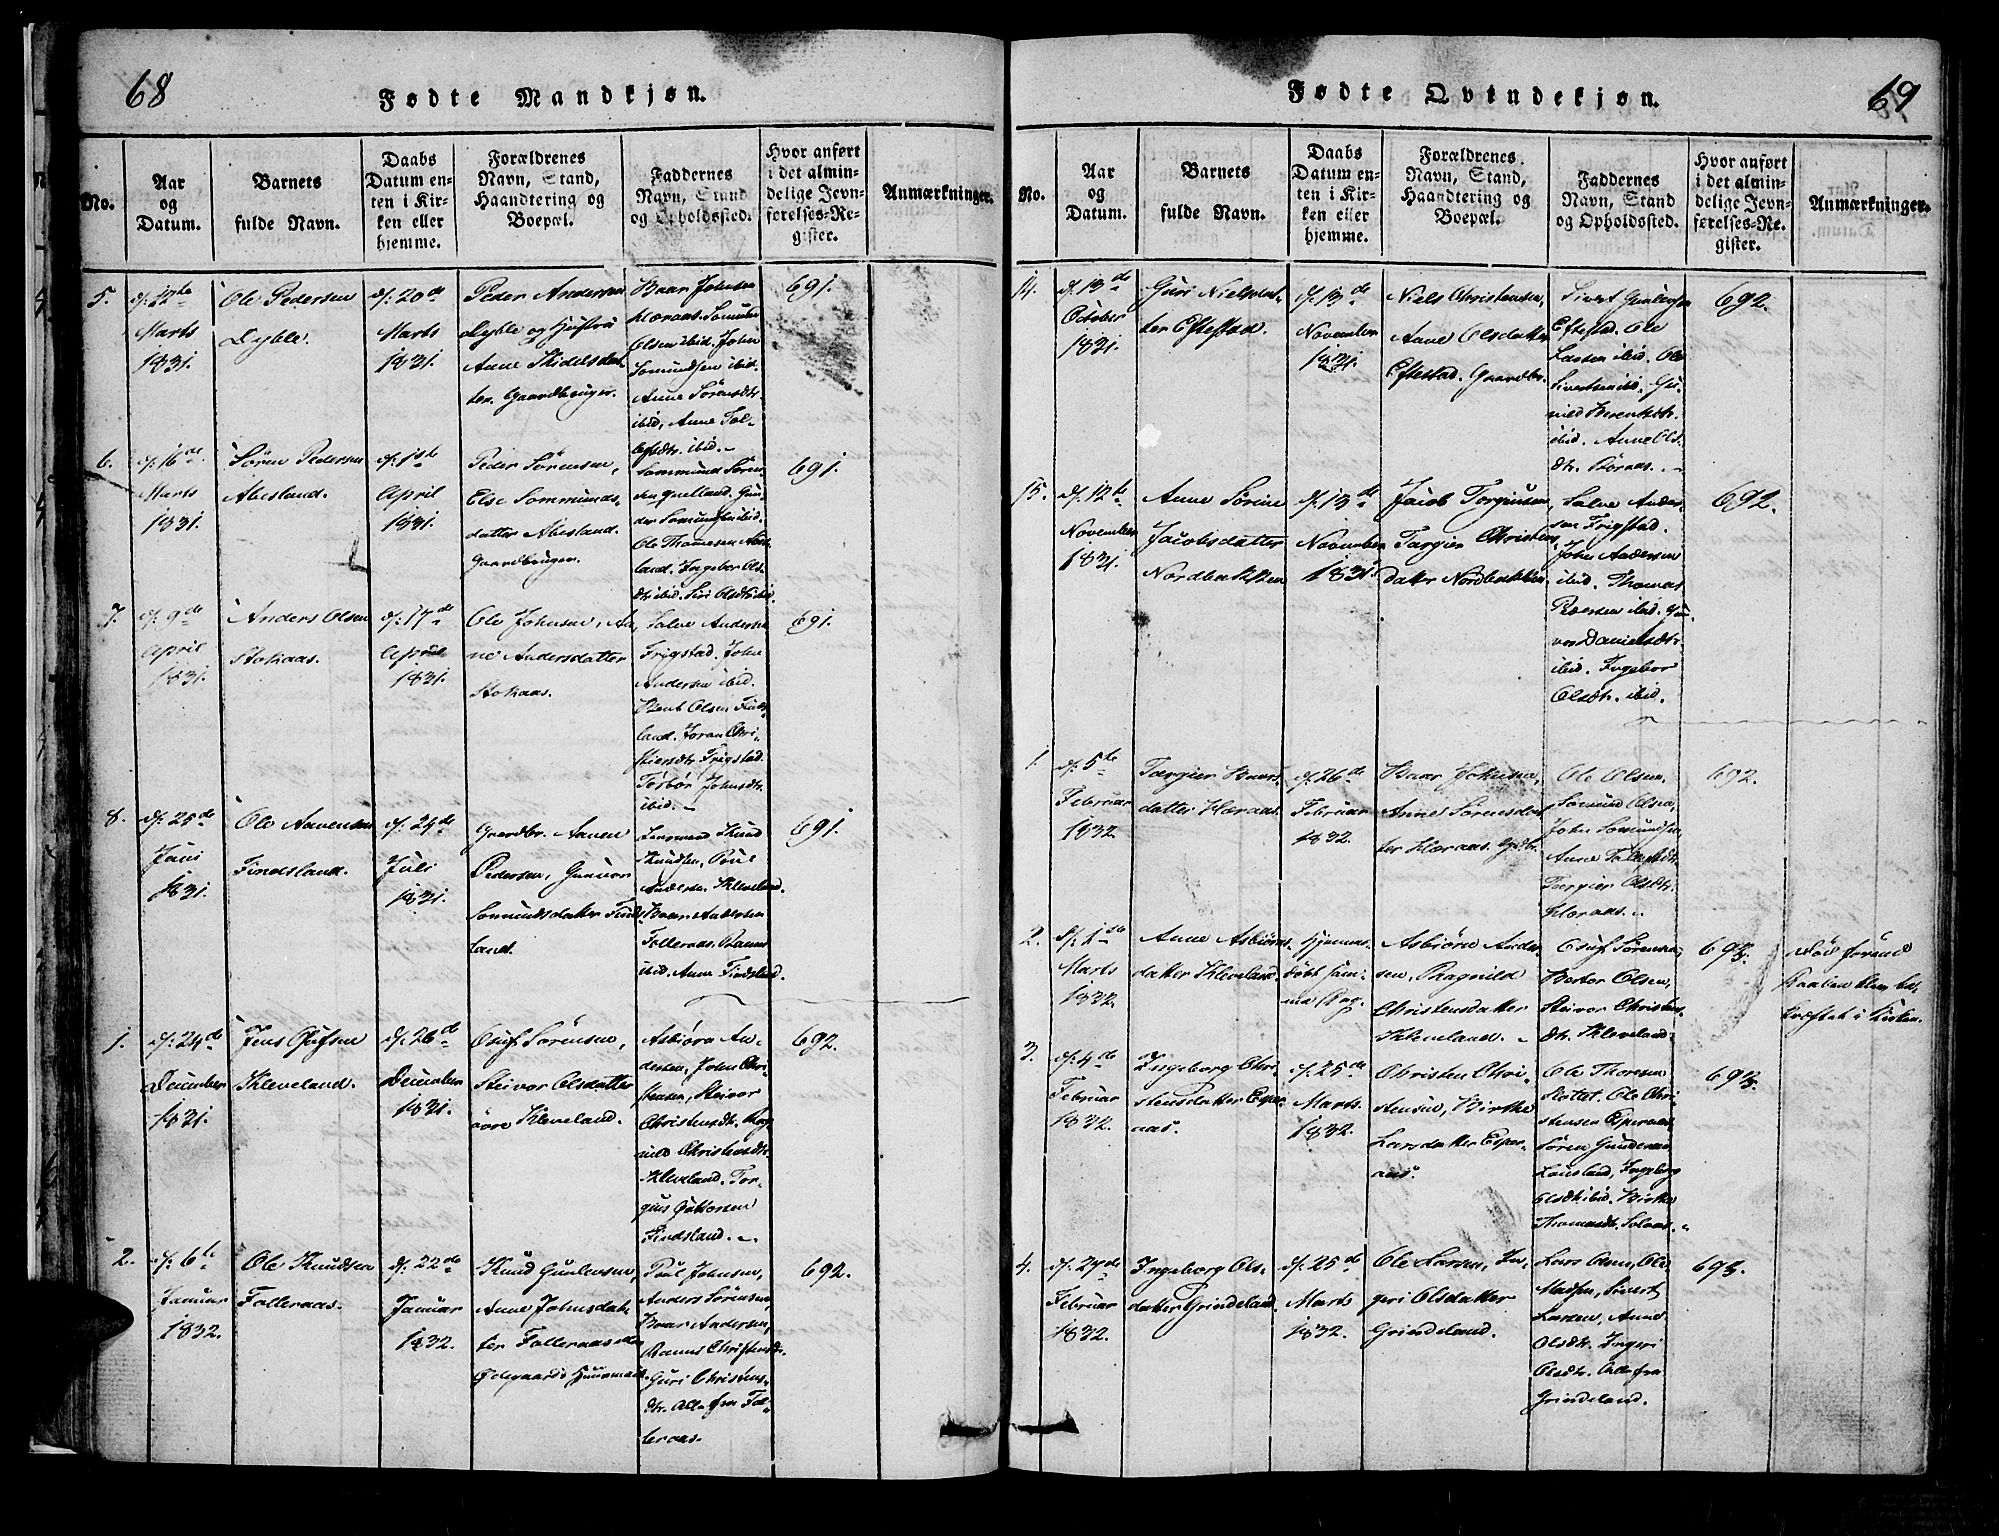 68
Fødte Mandkjøn.
No.
Aar og Datum.
Barnets fulde Navn.
Daabs Datum enten i Kirken eller hjemme.
Forældrenes Navn, Stand, Haandtering og Boepæl.
Faddernes Navn, Stand og Opholdssted.
Hvor anført i det almindelige Jevnførelses-Register.
Anmærkninger.
5.
d: 17de
Marts
1831.
Ole Pedersen
Dyble.
d: 20de
Marts
1831.
Peder Andersen
Dyble og Hustru
Anne Kidelsdat-
ter. Gaardbruger.
Baar Johnsen
Haaraas. Somund
Olsen ibid. John
Somundsen ibid.
Anne Sørensdtr.
ibid, Anne Tol-
lefsdtr. ibid.
691.
6.
d: 16de
Marts
1831.
Søren Pedersen
Abesland.
d: 1ste
April
1831.
Peder Sørensen,
Else Sommunds-
datter Abesland.
Gaardbruger.
Sommund Søren-
sen
Gun-
der Somundsen ibid.
Ole Thomesen
land. Ingebor Ols-
dtr. ibid. Siri Olsdtr. ibid.
691.
7.
d: 9de
April
1831.
Anders Olsen
Stokaas.
d: 17de
April
1831.
Ole Johnsen, An-
ne Andersdatter
Stokaas.
Salve Andersen
Frigstad. John
Andersen ibid.
Bent Olsen Finds-
land. Joran Chri-
stensdtr. Frigstad.
Torbør Johnsdtr.
ibid.
691.
8.
d: 25de
Juni
1831.
Ole Aavensen
Findsland.
d: 24de
Juli
1831.
Gaardbr. Aaven
Pedersen, Gunvor
Somundsdatter Finds-
land.
Knud
Knudsen, Poul
Andersen Kleveland.
Baar Andersen
Folleraas. Rauns
ibid. Anne Findsland.
691.
1.
d: 24de
December
1831.
Jens Osufsen
Kleveland.
d: 26de
December
1831.
Osuf Sørensen,
Steivor Olsdatter
øvre Kleveland.
Asbiørn An-
dersen, John Chri-
stensen, Steivor
Christensdtr. Rag-
nild Christensdtr.
Kleveland. Tor-
gius Guttorsen
Findsland.
692.
2.
d: 6te
Januar
1832.
Ole Knudsen
Folleraas.
d: 22de
Januar
1832.
Knud Gunlevsen,
Anne Johnsdat-
ter Folleraas eller
Ødegaards Huusmand.
Poul Johnsen,
Anders Sørensen,
Baar Andersen,
Raunes Christensdtr.
Guri Christens-
dtr. Alle fra Fol-
leraas.
692.
69
Fødte Qvindekjøn.
No.
Aar og Datum.
Barnets fulde Navn.
Daabs Datum enten i Kirken eller hjemme.
Forældrenes Navn, Stand, Haandtering og Boepæl.
Faddernes Navn, Stand og Opholdssted.
Hvor anført i det almindelige Jevnførelses-Register.
Anmærkninger.
14.
d: 13de
October
1831.
Guri Nielsdat-
ter Eftestad.
d: 13de
November
1831.
Niels Christensen,
Anne Olsdatter
Eftestad. Gaardbr.
Sivert Gunlevsen
Eftestad. Ole
Larsen ibid. Ole
Sivertsen ibid. Gu-
nild Berentsdtr.
ibid. Anne Ols-
dtr. Røraas.
692.
15.
d: 12te
November
1831.
Anne Sørine
Jacobsdatter
Nordbekken
d: 13de
November
1831.
Jacob Torgiusen,
Targier Christens-
datter Nordbekken
Salve Ander-
sen Frigstad.
John Andersen
ibid. Thomas
Pedersen ibid. Gun-
vor Danielsdtr.
ibid. Ingebor
Olsdtr. ibid.
692.
1.
d: 5te
Februar
1832.
Targier Baars-
datter Haraas.
d: 26de
Februar
1832.
Baar Johnsen,
Anne Sørensdat-
ter Haraas. Gdbr.
Ole Olsen,
Somund Olsen,
John Somundsen,
Anne Tollefsdtr.
Targier Olsdtr.
Haraas.
692.
2.
d: 1ste
Marts
1832.
Anne Asbiørns-
datter Kleveland.
Hjemme-
døbt sam-
me Dag.
Asbiørn Ander-
sen, Ragnild
Christensdatter
Kleveland.
Osuf Sørensen,
Bertor Olsen,
Steivor Christens-
dtr. Kleveland.
693.
Død førend
Daaben blev be-
kræftet i Kirken.
3.
d: 4de
Februar
1832.
Ingeborg Chri-
stensdatter Esper-
aas.
d: 25de
Marts
1832.
Christen Chri-
stensen, Birthe
Larsdatter Esper-
aas.
Ole Thorsen
Slottet. Ole Chri-
stensen Esperaas.
Søren Gundersen
Lousland, Ingeborg
Olsdtr. ibid. Birthe
Thomasdtr. Solaas.
693.
4.
d: 27de
Februar
1832.
Ingeborg Ols-
datter Grindeland.
d: 25de
Marts
1832.
Ole Larsen, In-
geri Olsdatter
Grindeland.
Lars Olsen, Ole
Madsen, Sivert
Larsen, Anne
Olsdtr. Ingeri
Olsdtr. Alle fra
Grindeland.
693.